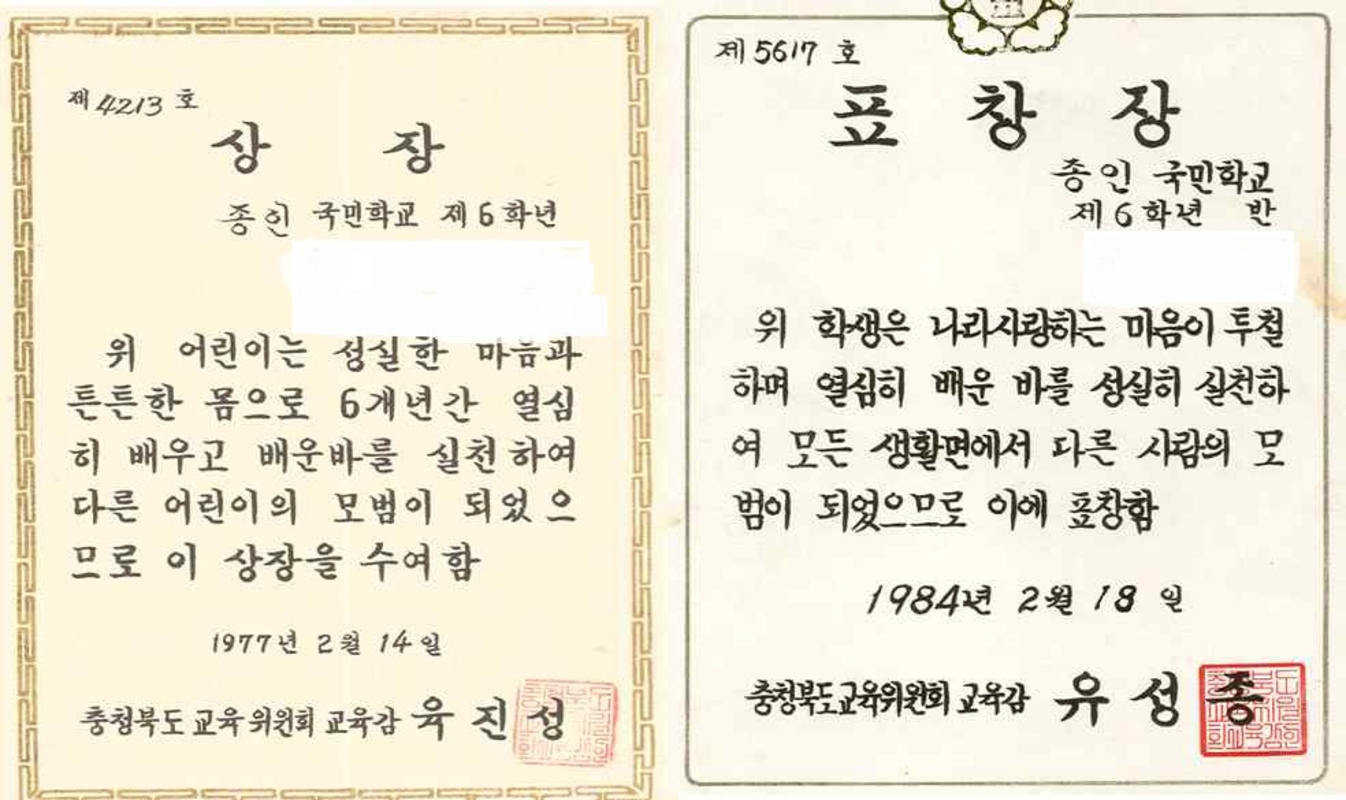 제 4213 호
상 장
종인 국민학교 제 6 학년
위 어린이는 성실한 마음과
튼튼한 몸으로 6개년간 열심
히 배우고 배운바를 실천하여
다른 어린이의 모범이 되었으
므로 이 상장을 수여함
1977년 2월 14일
충청북도교육위원회 교육감 육 진 성
제 5617 호
표 창 장
종인 국민학교
제 6 학년 반
위 학생은 나라사랑하는 마음이 투철
하며 열심히 배운 바를 성실히 실천하
여 모든 생활면에서 다른 사람의 모
범이 되었으므로 이에 표창함
1984년 2월 18일
충청북도교육위원회 교육감 유 성 종